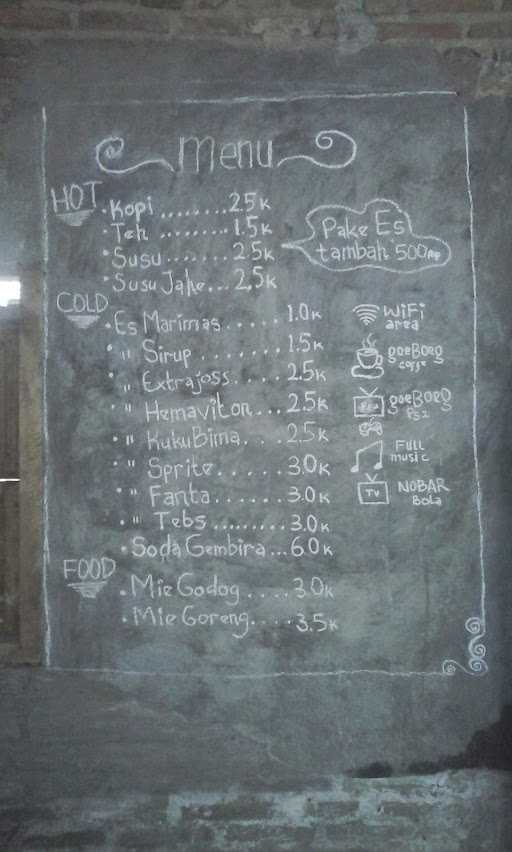 Menu
HOT
• Kopi ........ 2.5K
• Teh ........ 1.5K
• Susu ....... 2.5K
• Susu Jahe... 2,5K
Pake Es
tambah 500
COLD
• Es Marimas..... 1.0K
• " Sirup ....... 1.5K
• " Extrajoss..... 2.5K
• " Hemaviton... 2.5K
• " KukuBima... 2.5K
• " Sprite...... 3.0K
• " Fanta....... 3.0K
• " Tebs ......... 3.0K
• Soda Gembira... 6.0K
WiFi
area
goeBoeg
goeBoeg
PS2
FULL
music
TV
NOBAR
Bola
FOOD
• Mie Godog .... 3.0K
• Mie Goreng.... 3.5K